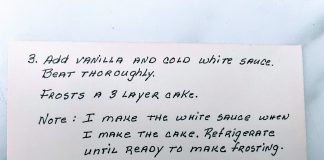 3. Add vanilla and cold white sauce.
Beat thoroughly.
Frosts a 3 layer cake.
Note: I make the white sauce when
I make the cake. Refrigerate
until ready to make frosting.